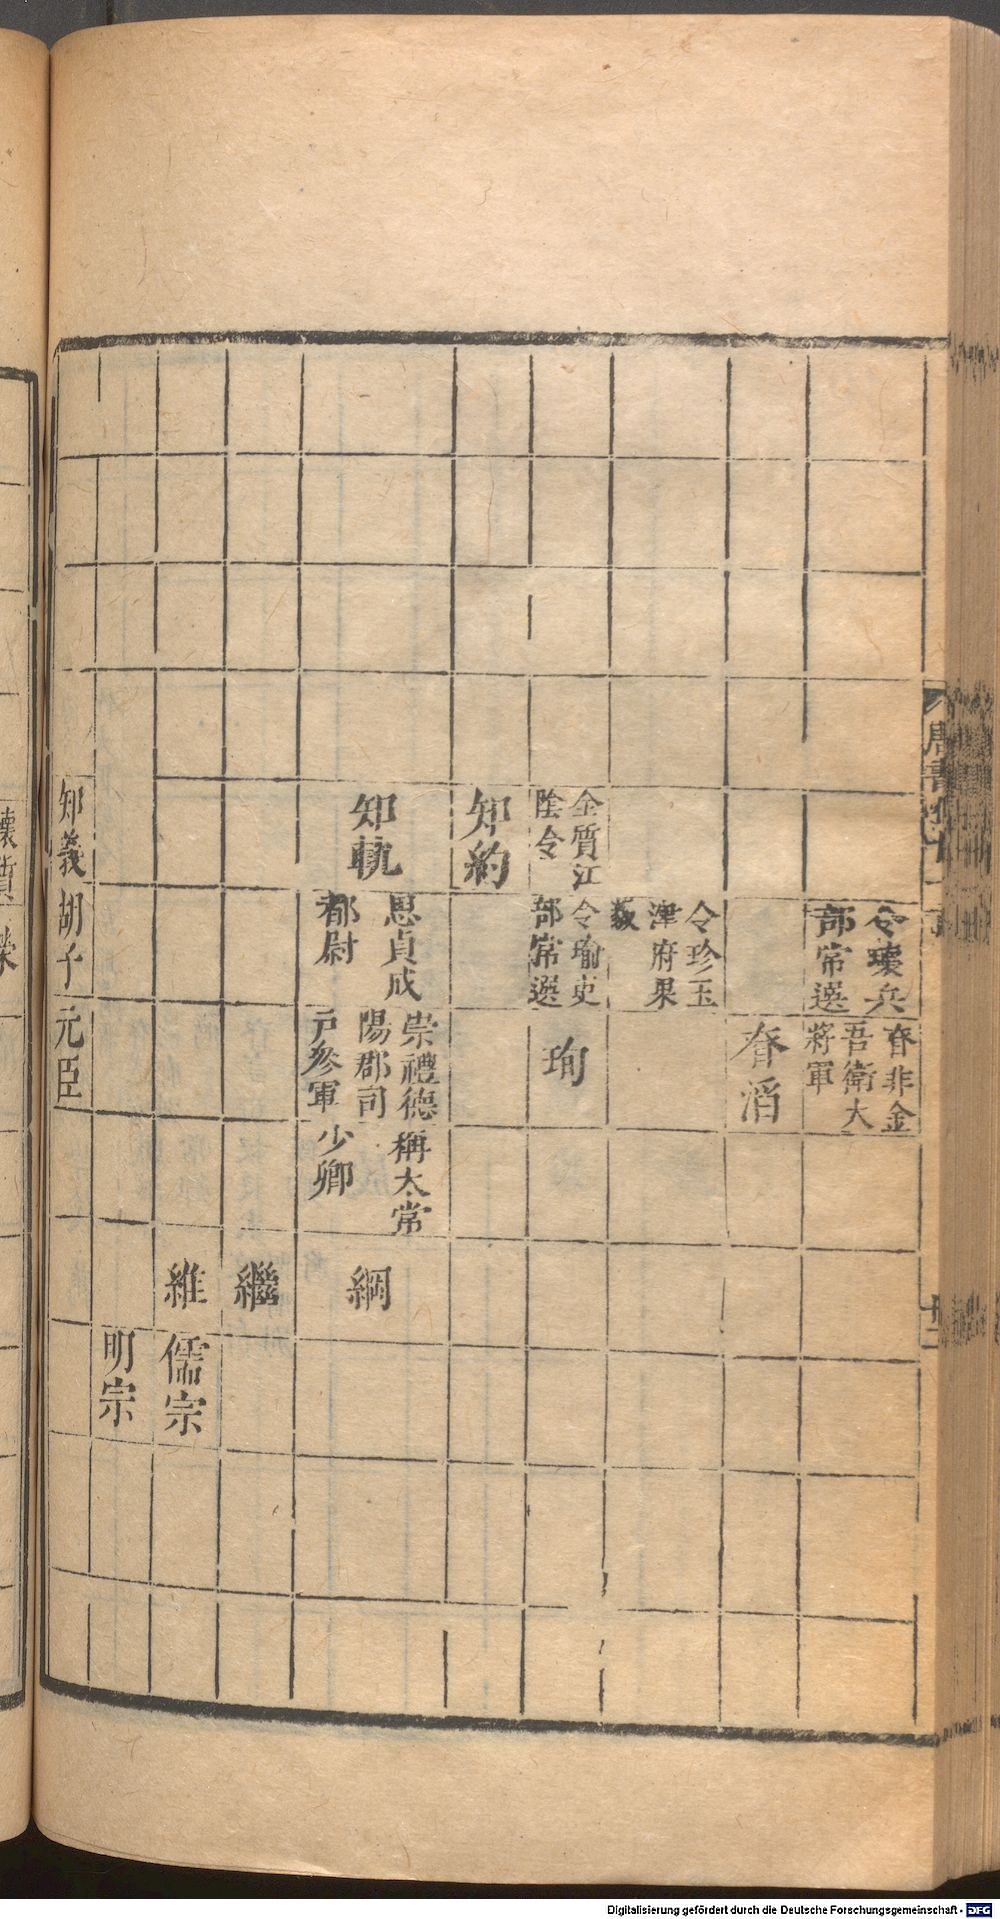 令瓌兵
部常選
眘非金
吾衛大
將軍
眘滔
令珍玉
津府果
毅
全質江
陰令
令瑜吏
部常選
珣
知約
知軌
思貞成
都尉
崇禮德
陽郡司
戶參軍
稱太常
少卿
綱
繼
維
儒宗
明宗
知義胡子元臣
唐書
Digitalisierung gefördert durch die Deutsche Forschungsgemeinschaft - DFG